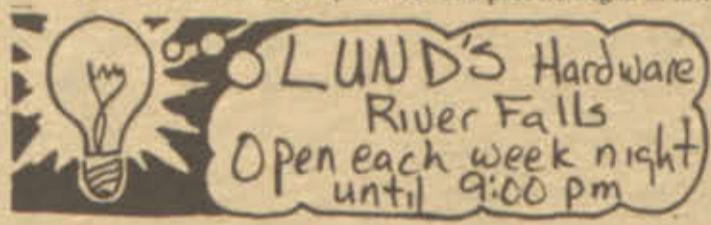 LUND'S Hardware
River Falls
Open each week night
until 9:00 pm